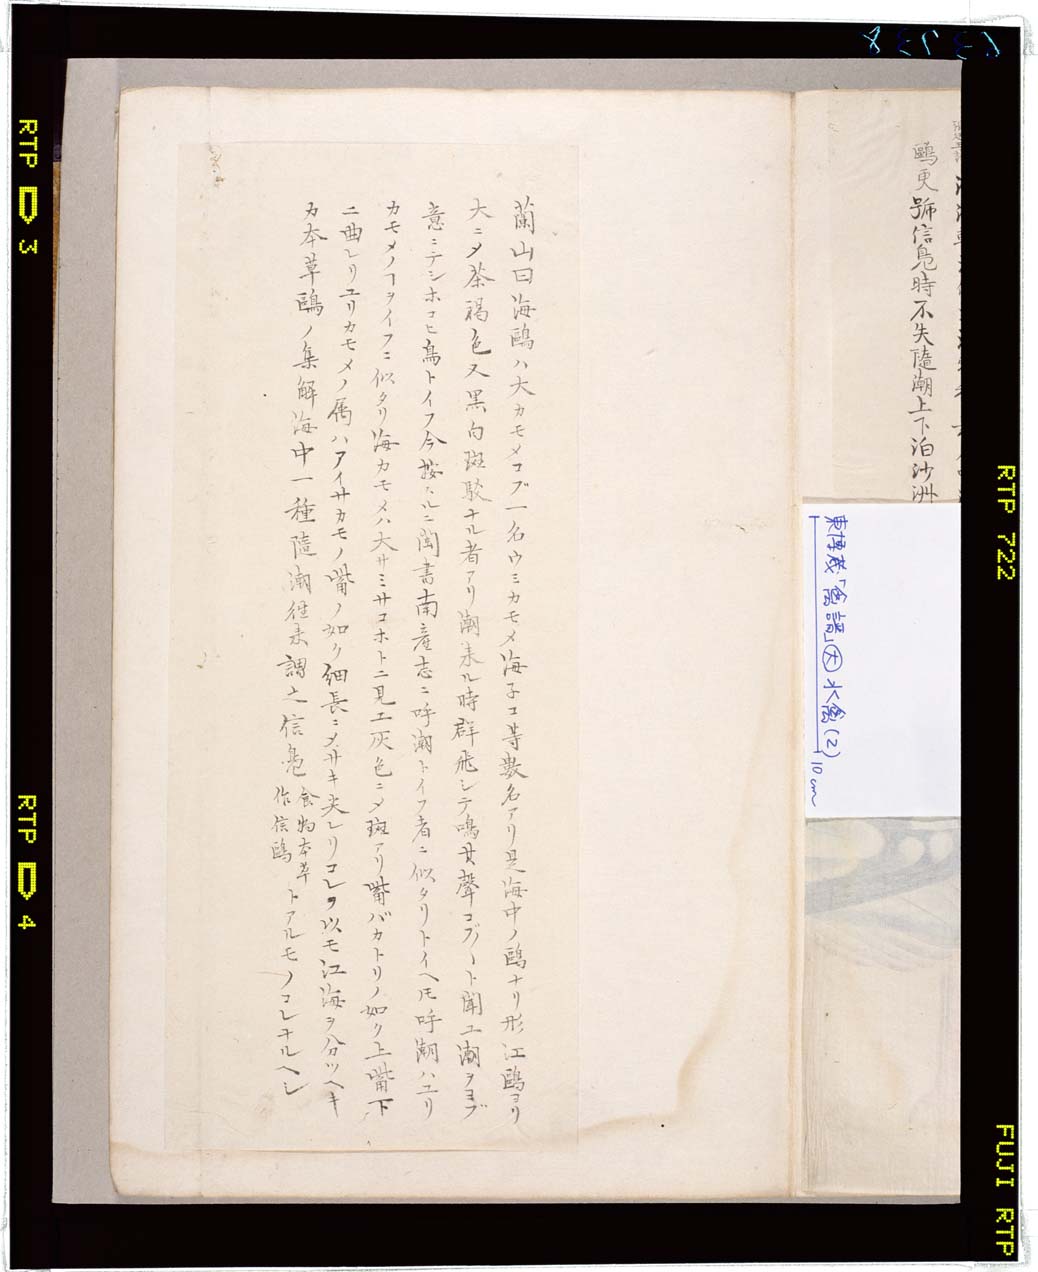 鷗更號信鳬時不失隨潮上下泊沙洲
蘭山曰海鷗ハ大カモメコブ一名ウミカモメ海子コ等數名アリ是海中ノ鷗ナリ形江鷗ヨリ
大ニメ茶褐色又黒白斑駁ナル者アリ潮来ル時群飛シテ鳴其聲コブ〳〵ト聞ユ潮ヲヨブ
意ニテシホコヒ鳥トイフ今按スルニ閩書南産志ニ呼潮トイフ者ニ似タリトイヘ𪜈呼潮ハユリ
カモメノヿヲイフニ似タリ海カモメハ大サミサコホトニ見エ灰色ニメ斑アリ嘴バカトリノ如ク上嘴下
ニ曲レリユリカモメノ属ハアイサカモノ嘴ノ如ク細長ニメサキ尖レリコレヲ以モ江海ヲ分ツヘキ
カ本草鷗ノ集解海中一種隨潮徃来謂之信鳬食物本草作信鷗トアルモノコレナルヘシ
東博蔵「禽譜」大 水禽(2)
10cm
RTP 3
RTP 4
RTP 722
FUJI RTP